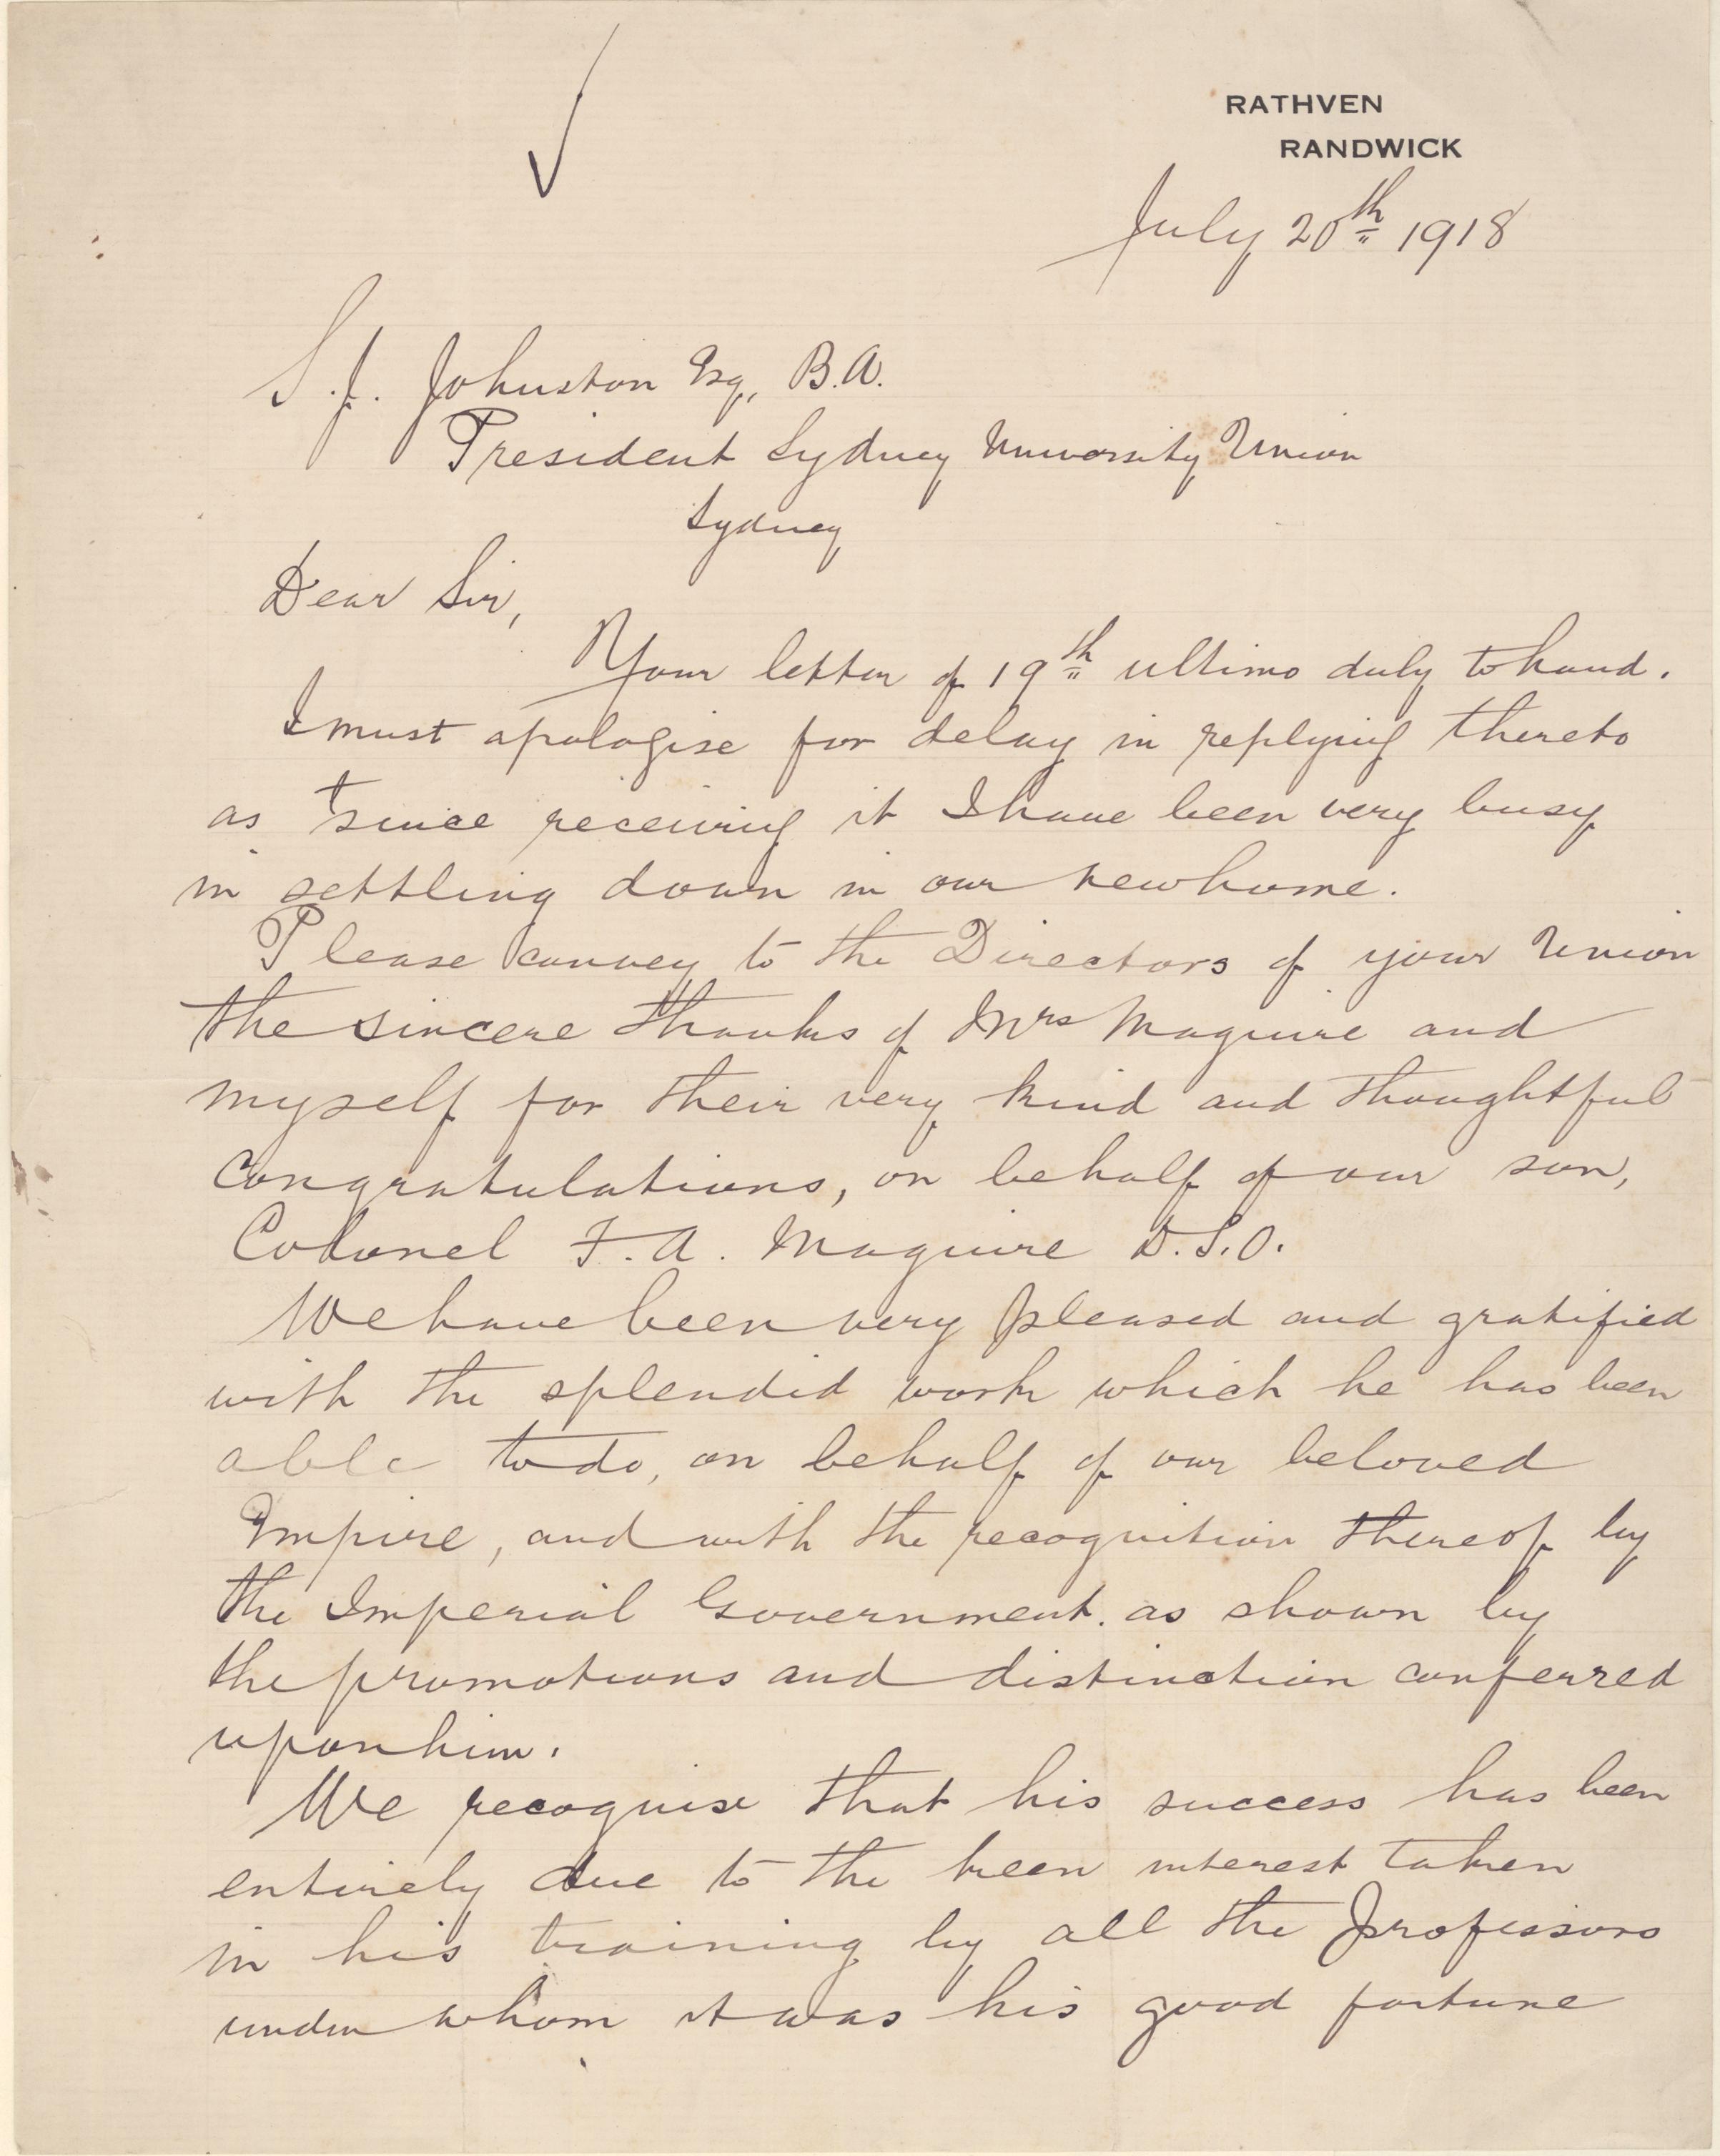 RATHVEN
RANDWICK
July 20th 1918
S. J. Johnston Esq., B.A.
President Sydney University Union
Sydney
Dear Sir,
Your letter of 19th ultimo duly to hand.
I must apologise for delay in replying thereto
as since receiving it I have been very busy
in settling down in our new home.
Please convey to the Directors of your Union
the sincere thanks of Mrs Maguire and
myself for their very kind and thoughtful
congratulations, on behalf of our son,
Colonel F. A. Maguire D.S.O.
We have been very pleased and gratified
with the splendid work which he has been
able to do, on behalf of our beloved
Empire, and with the recognition thereof by
the Imperial Government. as shown by
the promotions and distinction conferred
upon him.
We recognise that his success has been
entirely due to the keen interest taken
in his training by all the Professors
under whom it was his good fortune